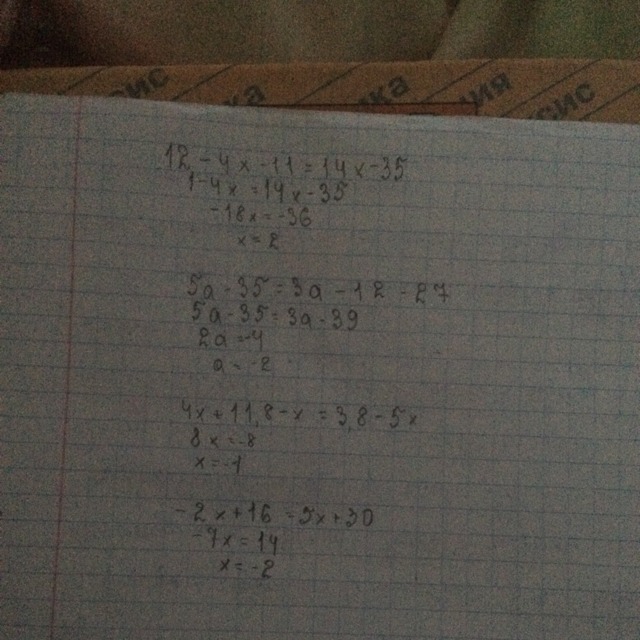 сис
ка
ка
ия
сис
12 - 4x - 11 = 14x - 35
1 - 4x = 14x - 35
-18x = -36
x = 2
5a - 35 = 3a - 12 - 27
5a - 35 = 3a - 39
2a = -4
a = -2
4x + 11,8 - x = 3,8 - 5x
8x = -8
x = -1
-2x + 16 = 5x + 30
-7x = 14
x = -2